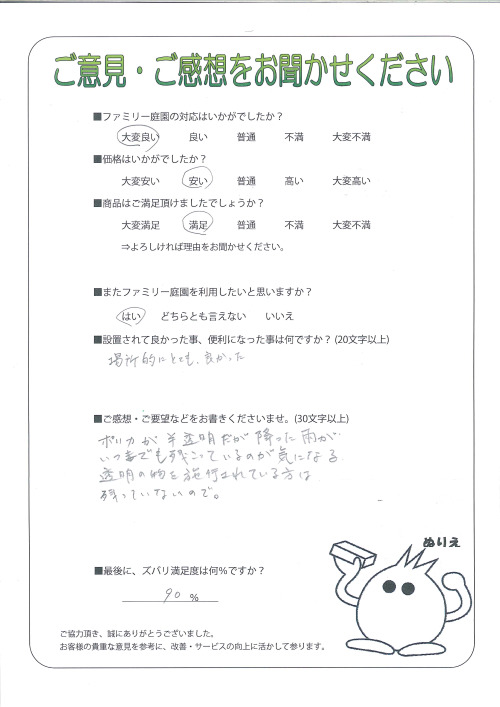 ご意見・ご感想をお聞かせください
■ファミリー庭園の対応はいかがでしたか？
大変良い 良い 普通 不満 大変不満
■価格はいかがでしたか？
大変安い 安い 普通 高い 大変高い
■商品はご満足頂けましたでしょうか？
大変満足 満足 普通 不満 大変不満
⇒よろしければ理由をお聞かせください。
■またファミリー庭園を利用したいと思いますか？
はい どちらとも言えない いいえ
■設置されて良かった事、便利になった事は何ですか？(20文字以上)
場所的にとても、良かった
■ご感想・ご要望などをお書きくださいませ。(30文字以上)
ポリカが半透明だが降った雨が
いつまでも残こっているのが気になる
透明の物を施行されている方は
残っていないので。
ぬりえ
■最後に、ズバリ満足度は何%ですか？
90 %
ご協力頂き、誠にありがとうございました。
お客様の貴重な意見を参考に、改善・サービスの向上に活かして参ります。